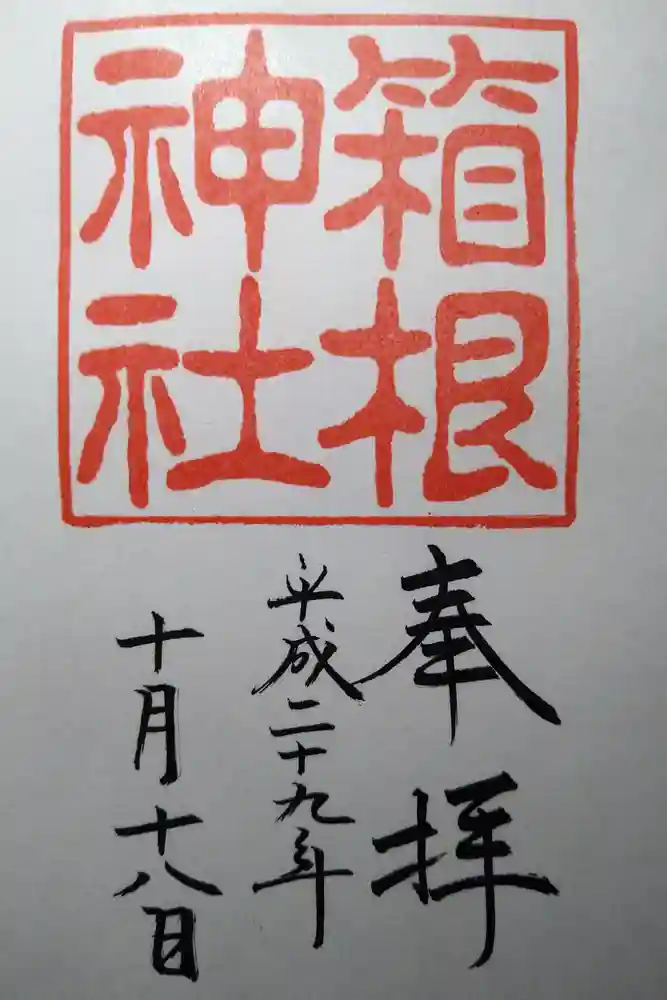 箱根
神社
奉拝
平成二十九年
十月十八日